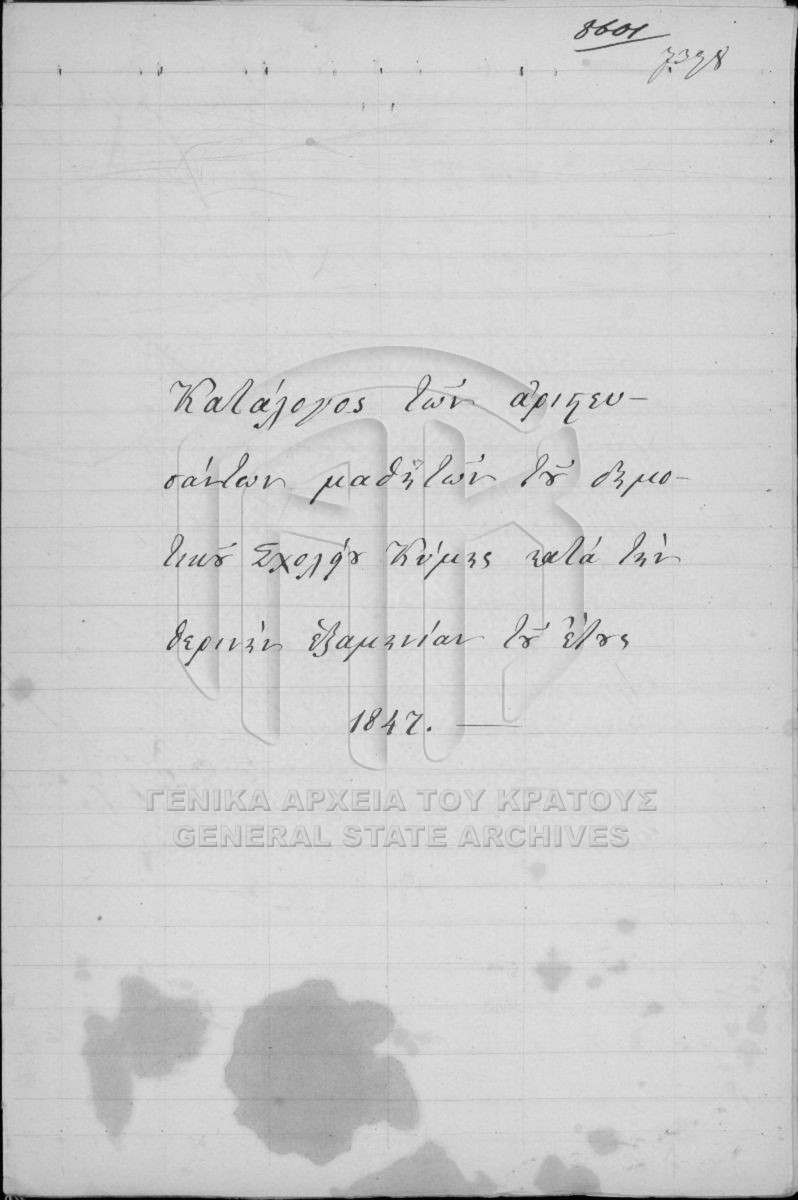 8601
7398
Κατάλογος τῶν ἀριστευ-
σάντων μαθητῶν τοῦ δημο-
τικοῦ Σχολείου Κύμης κατά τήν
θερινήν ἑξαμηνίαν τοῦ ἔτους
1847. —
ΓΕΝΙΚΑ ΑΡΧΕΙΑ ΤΟΥ ΚΡΑΤΟΥΣ
GENERAL STATE ARCHIVES